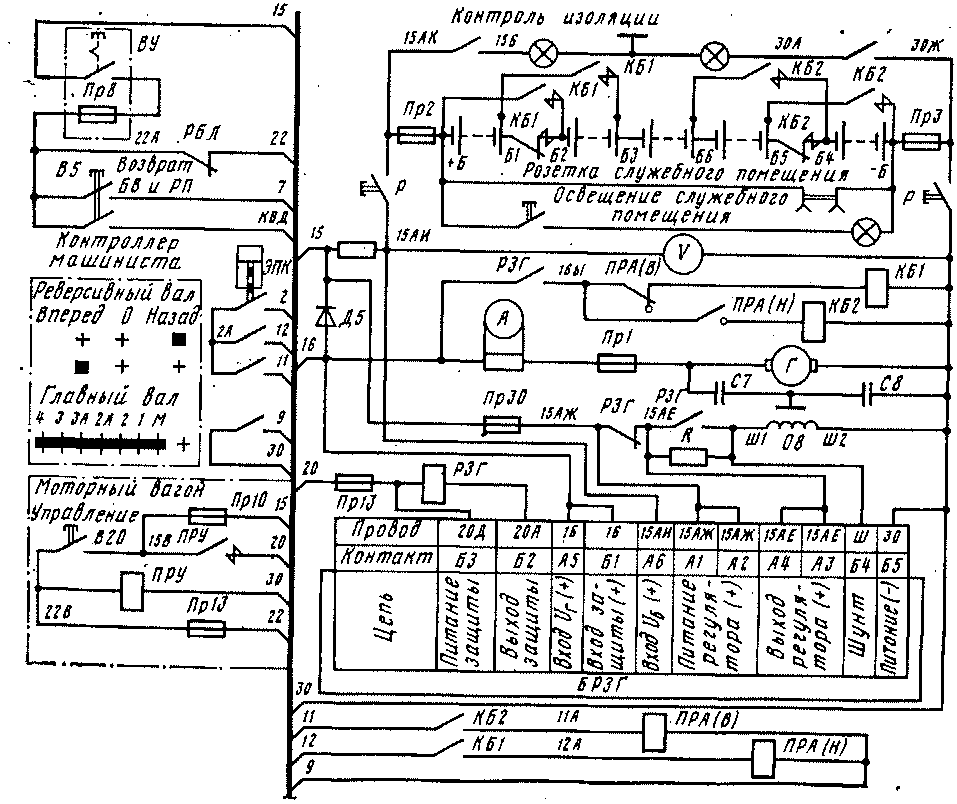 15
ВУ
Пр8
22А
РБЛ
22
В5
Возврат
БВ и РП
7
КВД
Контроллер
машиниста
ЭПК
Реверсивный вал
Вперед 0 Назад
2
2А
12
11
Главный вал
4 3 3А 2А 2 1 М
9
30
Моторный вагон
Управление
Пр10
15
В20
15В
ПРУ
20
ПРУ
30
22В
Пр13
22
Контроль изоляции
15АК
15Б
30А
30Ж
КБ1
КБ2
КБ2
КБ1
Пр2
КБ1
КБ2
Пр3
+Б
Б1
Б2
Б3
Б6
Б5
Б4
-Б
Розетка служебного помещения
Р
Освещение служебного
помещения
Р
15
15АИ
V
РЗГ
16Ы
ПРА(В)
КБ1
Д5
А
ПРА(Н)
КБ2
16
Пр1
Г
С7
С8
Пр30
15АЖ
РЗГ
РЗГ
15АЕ
R
Ш1
ОВ
Ш2
20
Пр13
РЗГ
Провод 20Д 20А 16 16 15АИ 15АЖ 15АЖ 15АЕ 15АЕ Ш 30
Контакт Б3 Б2 А5 Б1 А6 А1 А2 А4 А3 Б4 Б5
Цепь
Питание
защиты
Выход
защиты
Вход Uг (+)
Вход за-
щиты (+)
Вход Uб (+)
Питание
регуля-
тора (+)
Выход
регуля-
тора (+)
Шунт
Питание(-)
БРЗГ
30
11
КБ2
11А
ПРА(В)
12
КБ1
12А
ПРА(Н)
9